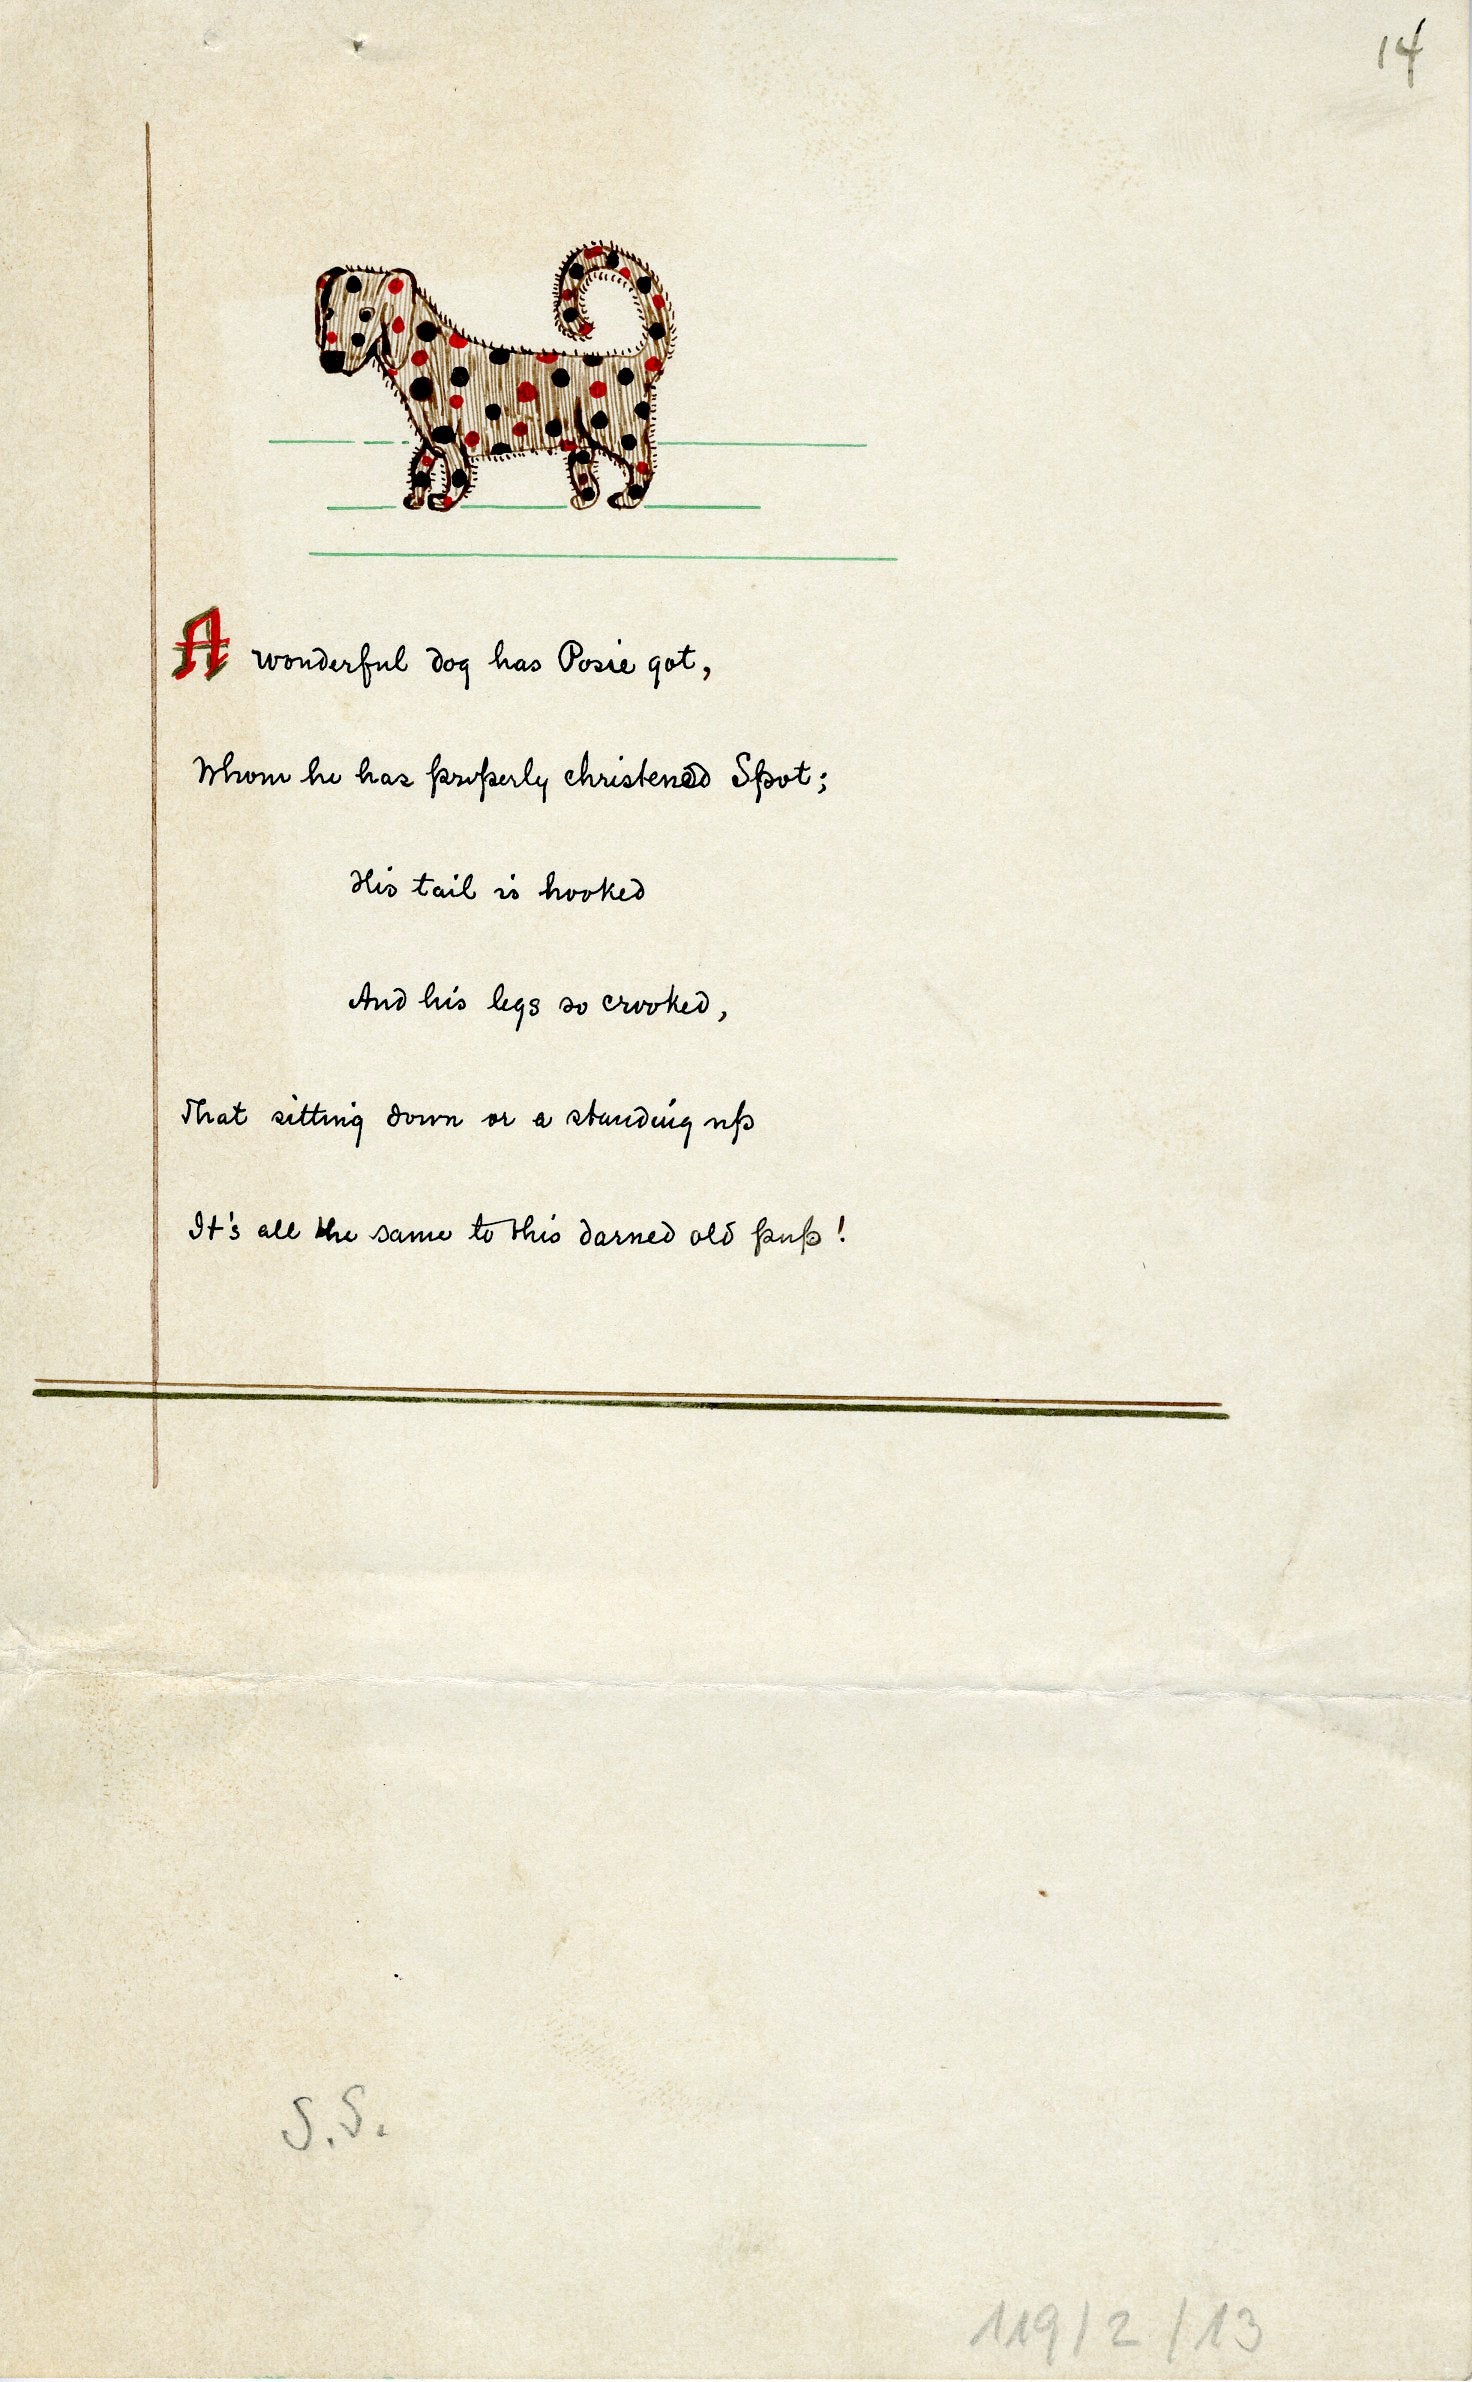 14
A wonderful dog has Posie got,
Whom he has properly christened Spot;
His tail is hooked
And his legs so crooked,
That sitting down or a standing up
It's all the same to this darned old pup!
S.S.
119/2/13